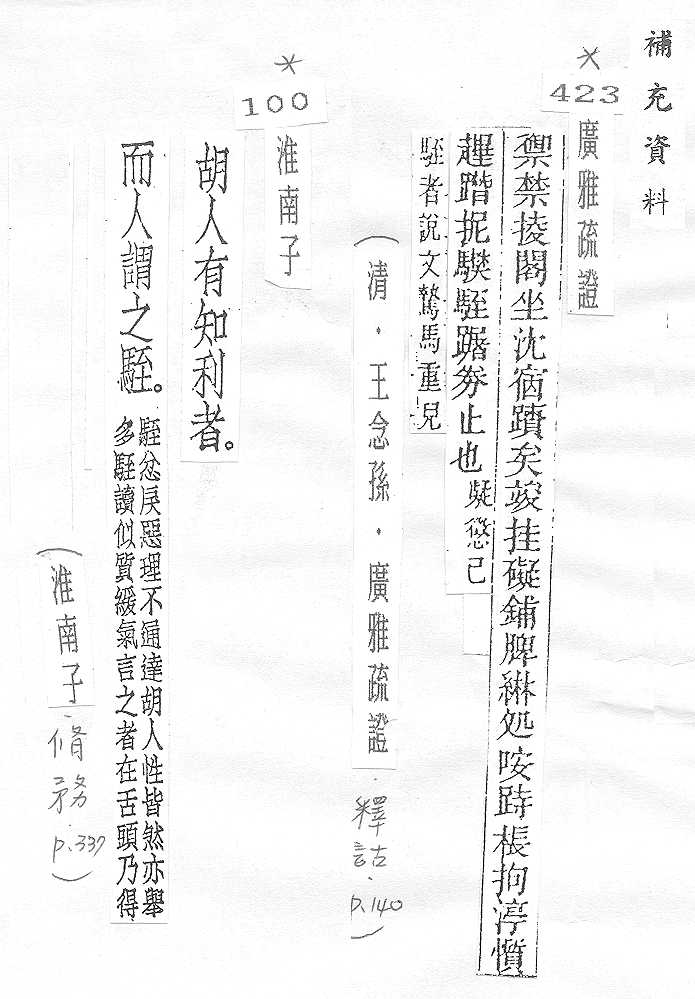 補充資料
*
423
廣雅疏證
禦禁掕閣坐沈宿躓矣竣挂礙鋪脾綝処咹跱棖拘渟懫
趩踖抳騤駤踞券止也 礙懲己
駤者說文驇馬重皃
(清.王念孫.廣雅疏證.釋詁.p.140)
*
100
淮南子
胡人有知利者。
而人謂之駤。
駤忿戾惡理不通達胡人性皆然亦舉
多駤讀似質緩氣言之者在舌頭乃得
(淮南子.脩務.p.337)